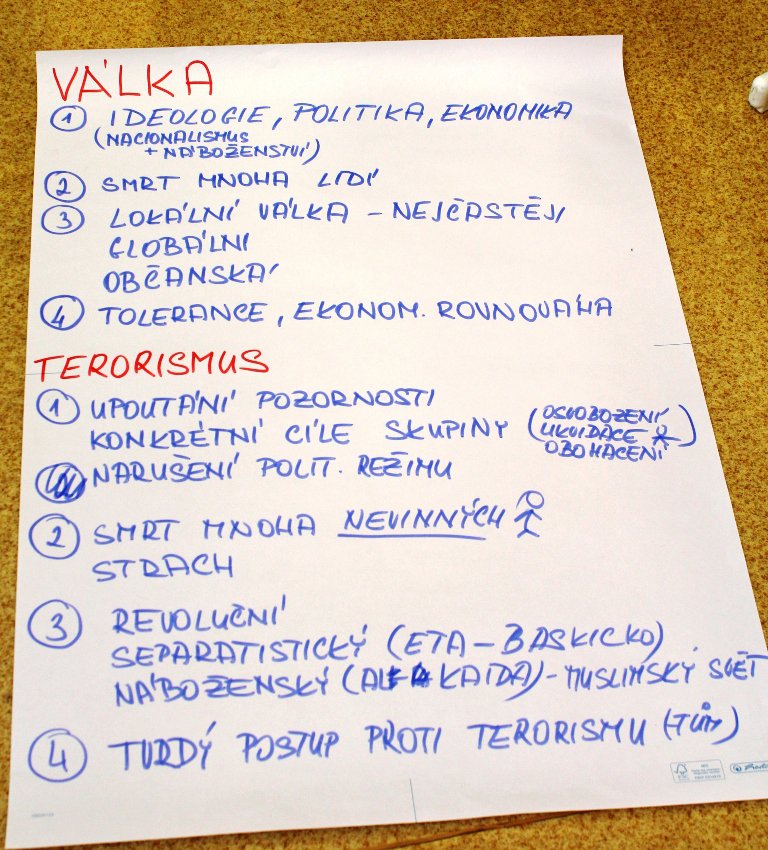 VÁLKA
1 IDEOLOGIE, POLITIKA, EKONOMIKA
(NACIONALISMUS
+ NÁBOŽENSTVÍ)
2 SMRT MNOHA LIDÍ
3 LOKÁLNÍ VÁLKA – NEJČASTĚJI
GLOBÁLNÍ
OBČANSKÁ
4 TOLERANCE, EKONOM. ROVNOVÁHA
TERORISMUS
1 UPOUTÁNÍ POZORNOSTI
KONKRÉTNÍ CÍLE SKUPINY (OSVOBOZENÍ
LIKVIDACE
OBOHACENÍ)
NARUŠENÍ POLIT. REŽIMU
2 SMRT MNOHA NEVINNÝCH
STRACH
3 REVOLUČNÍ
SEPARATISTICKÝ (ETA – BASKICKO)
NÁBOŽENSKÝ (AL KAIDA) – MUSLIMSKÝ SVĚT
4 TVRDÝ POSTUP PROTI TERORISMU (TŮM)
FSC